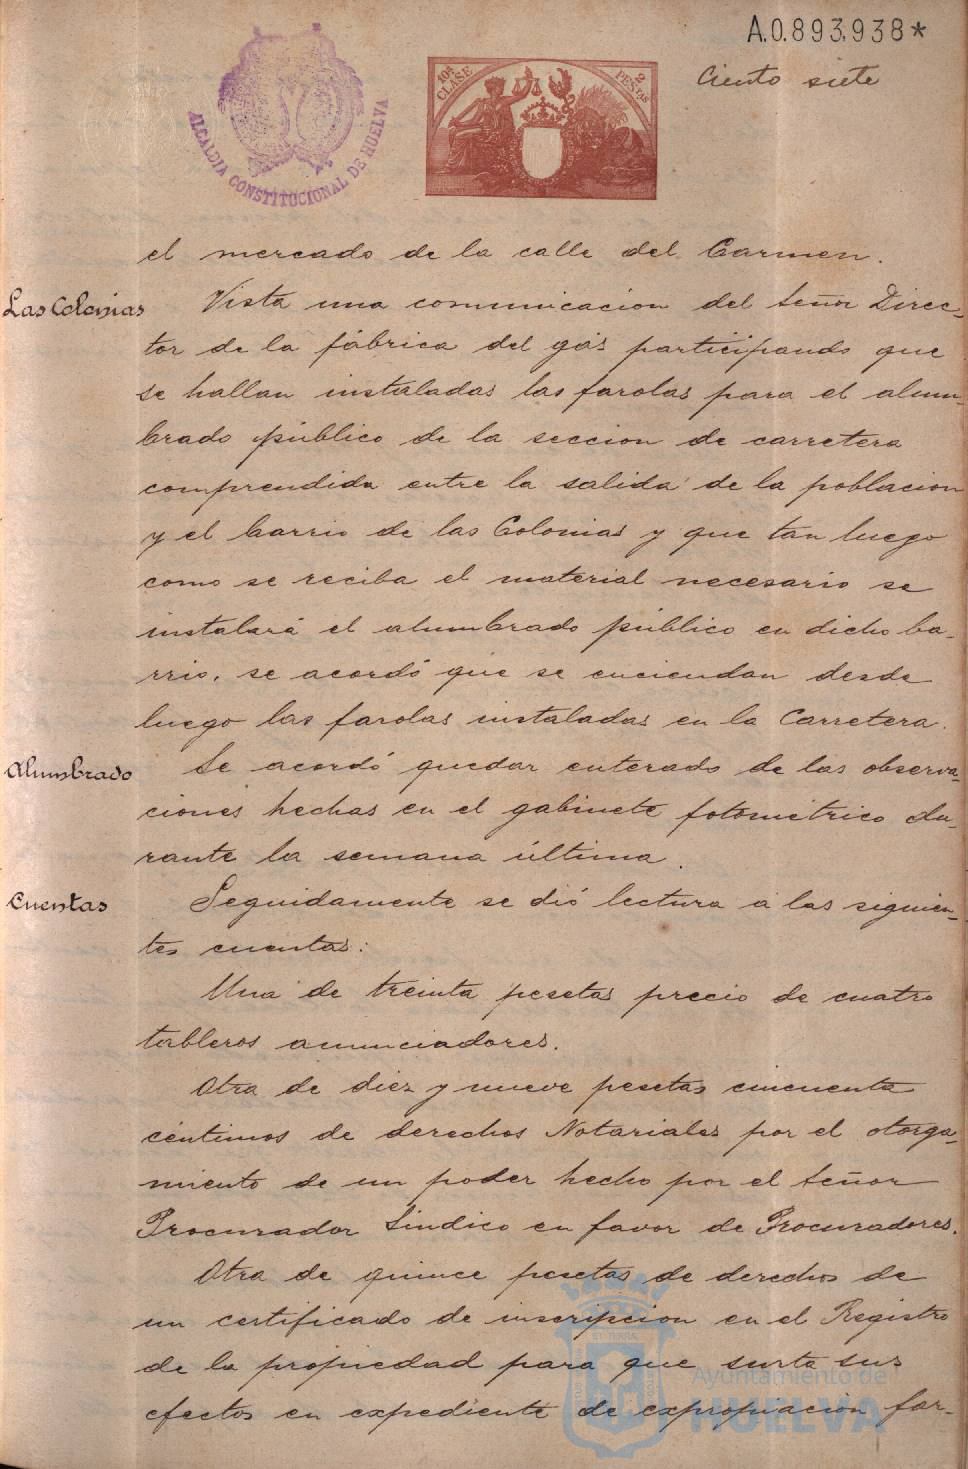 A.0.893,938*
Ciento siete
ALCALDIA CONSTITUCIONAL DE HUELVA
10ª CLASE
2 PESTAS
el mercado de la calle del Carmen.
Las Colonias
Vista una comunicacion del Señor Direc-
tor de la fábrica del gás participando que
se hallan instaladas las farolas para el alum-
brado público de la seccion de carretera
comprendida entre la salida de la poblacion
y el barrio de las Colonias y que tan luego
como se reciba el material necesario se
instalará el alumbrado público en dicho ba-
rrio, se acordó que se enciendan desde
luego las farolas instaladas en la Carretera.
Alumbrado
Se acordó quedar enterado de las observa-
ciones hechas en el gabinete fotométrico du-
rante la semana última.
Cuentas
Seguidamente se dió lectura á las siguien-
tes cuentas:
Una de treinta pesetas precio de cuatro
tableros anunciadores.
Otra de diez y nueve pesetas cincuenta
céntimos de derechos Notariales por el otorga-
miento de un poder hecho por el Señor
Procurador Síndico en favor de Procuradores.
Otra de quince pesetas de derechos de
un certificado de inscripcion en el Registro
de la propiedad para que surta sus
efectos en expediente de expropiacion for-
Ayuntamiento de
HUELVA